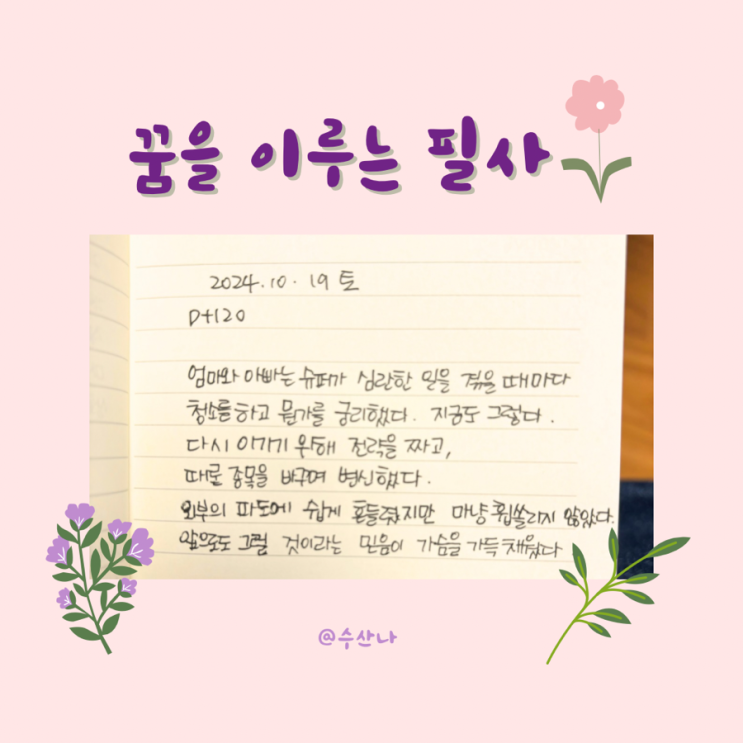 꿈을 이루는 필사
2024.10.19 토
D+120
엄마와 아빠는 슈퍼가 심란한 일을 겪을 때마다
청소를 하고 뭔가를 궁리했다. 지금도 그렇다.
다시 이기기 위해 전략을 짜고,
때로 종목을 바꾸며 변신했다.
외부의 파도에 쉽게 흔들렸지만 마냥 휩쓸리지 않았다.
앞으로도 그럴 것이라는 믿음이 가슴을 가득 채웠다
@수산나